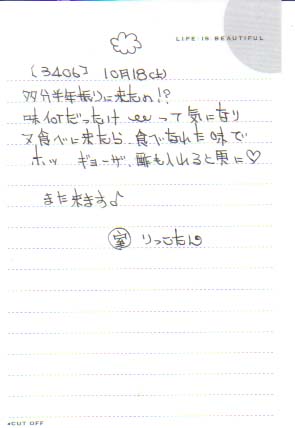 LIFE IS BEAUTIFUL
[3406] 10月18(土)
多分半年振りに来たの!?
味何だったけ って気になり
又食べに来たら 食べなれた味で
ホッ ギョーザ、酢も入れると更に♡
また来ます♪
室 りっこたんの
CUT OFF